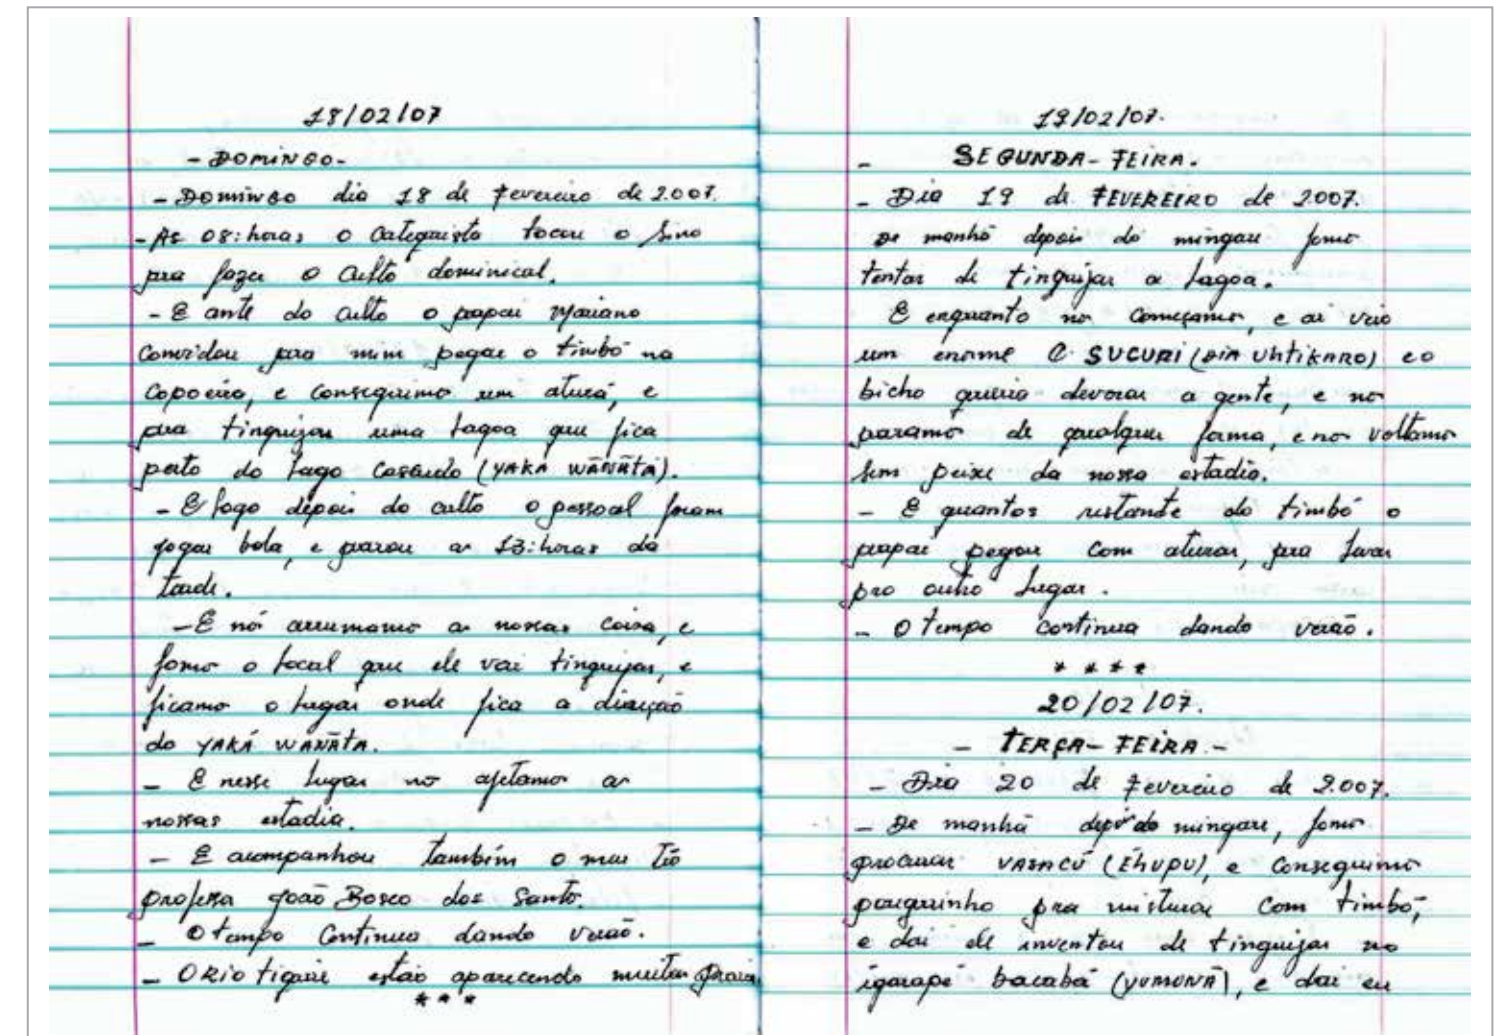 18/02/07
- DOMINGO-
- DOMINGO dia 18 de fevereiro de 2.007.
- As 08:horas o Catequista tocou o sino
pra fazer o Culto dominical.
- E ante do culto o papai Mariano
Convidou pra mim pegar o timbó na
Capoeira, e conseguimo um aturá, e
pra tinguijar uma lagoa que fica
perto do lago Casando (YAKÁ WÃNÃTÁ).
- E logo depois do culto o pessoal foram
jogar bola, e parou as 13:horas da
tarde.
- E nós arrumamo as nossas coisa, e
fomos o local que ele vai tinguijar, e
ficamo o lugar onde fica a direção
do YAKÁ WÃNÃTA.
- E nesse lugar no ajetamo as
nossas estadia.
- E acompanhou também o meu tio
professor João Bosco dos Santo.
- O tempo Continua dando verão.
- O Rio tiquié estão aparecendo muitas praia
* * *
19/02/07.
- SEGUNDA-FEIRA.
- Dia 19 de FEVEREIRO de 2007.
De manhã depois do mingau fomo
tentar de tinguijar a lagoa.
E enquanto no Começamo, e ai veio
um enorme SUCURI (DIA UHTIKARO) e o
bicho queria devorar a gente, e no
paramos de qualquer forma, e nos voltamo
sem peixe da nossa estadia.
- E quantos restante do timbó o
papai pegou com aturas, pra levar
pro outro lugar.
- O tempo continua dando verão.
* * * *
20/02/07.
- TERÇA-FEIRA.-
- Dia 20 de fevereiro de 2.007.
- De manhã depois do mingau, fomos
procurar VASACÚ (ẼHUPU), e Conseguimo
pouquinho pra misturar com timbó,
e dai ele inventou de tinguijar no
igarapé bacabá (YUMUNÃ), e dai eu